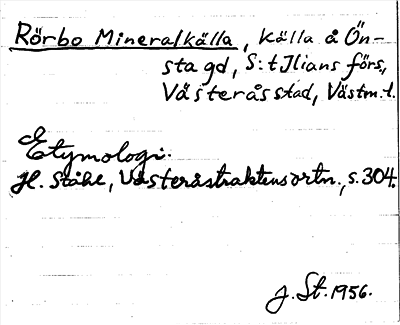 Rörbo Mineralkälla, källa å Ön-
sta gd, S:t Ilians förs.,
Västerås stad, Västm.l.
Etymologi:
H. Ståhl, Västeråstraktens ortn., s. 304.
J. St. 1956.